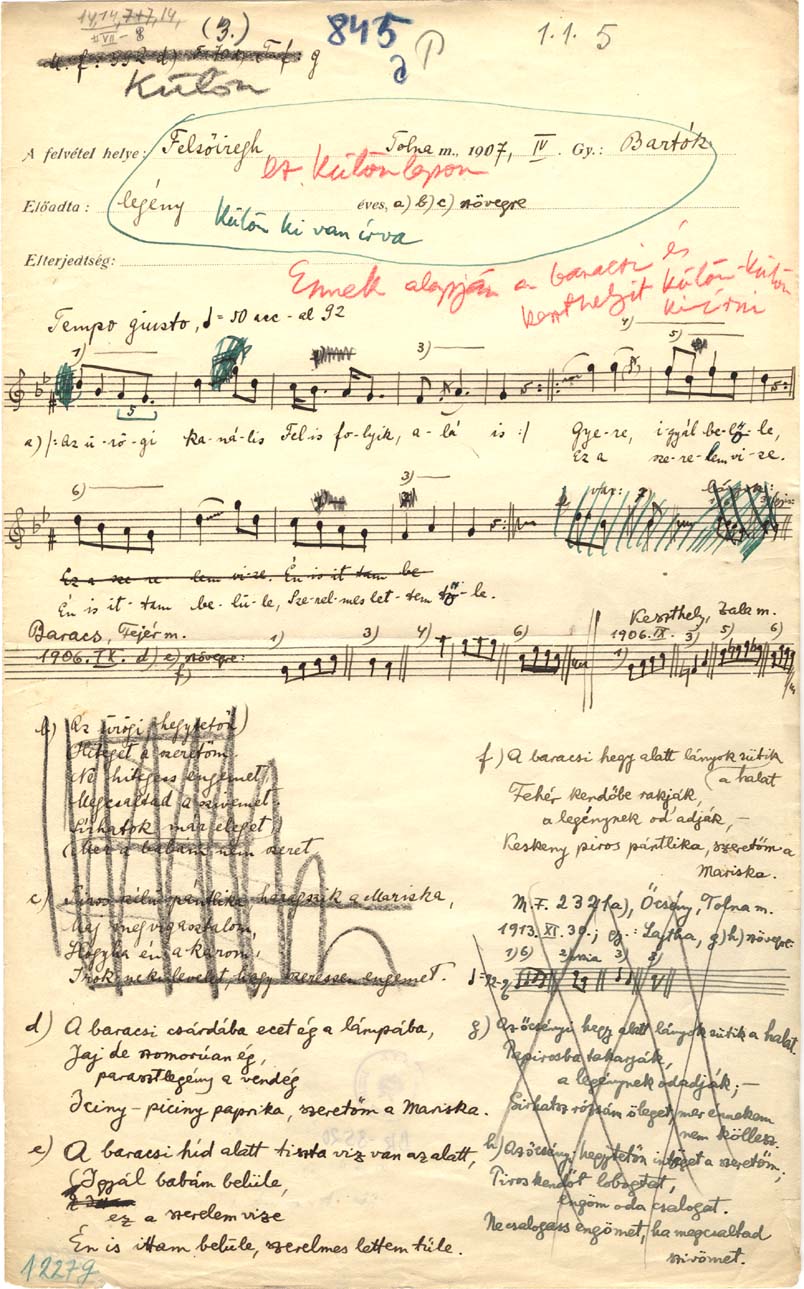 14,14,7+7,14,
8 – VII
(3.)
845
1.1. 5
a
P
g
Külön
A felvétel helye: Felsőiregh Tolna m., 1907, IV. Gy.: Bartók
ez. Külön lapon
Előadta: legény éves, a) b) c) szövegre
Külön ki van írva
Elterjedtség:
Ennek alapján a baracsi és
keszthelyit külön-külön
kiírni
Tempo giusto, = 50 acc - al 92
1) 3) 4) 5)
5
a) /: Az ü-rö-gi ka-ná-lis Fel-is fo-lyik, a-lá is :/ Gye-re, igyál be-lő-le,
Ez a sze-re-lem vi-ze.
6) 3) var: 7)
Ez a sze re lem vi-ze. Én is it tam be
Én is it-tam be-lü-le, Sze-rel-mes let-tem tő-le.
Baracs, Fejér m. 1) 3) 4) 6) Keszthely, Zala m.
1906. IX. d) e) szövegre: 1906. IX. 1) 3) 5) 6)
f)
b) Az ürögi hegytetőn
Hiteget a szeretőm.
Ne hitegess engemet,
Megcsaltad a szivemet;
Sírhatok már eleget,
Mer a babám nem szeret
c) Piros szélü pántlika, haragszik a Mariska,
Maj megvigasztalom,
Hogyha én akarom,
Irok neki levelet, hogy szeressen engemet.
d) A baracsi csárdába ecet ég a lámpába,
Jaj de szomorúan ég,
parasztlegény a vendég
Iciny-piciny paprika, szeretőm a Mariska.
e) A baracsi híd alatt tiszta viz van az alatt,
Igyál babám belüle,
ez a szerelem vize
Én is ittam belüle, szerelmes lettem tüle.
f) A baracsi hegy alatt lányok sütik
a halat
Fehér kendőbe rakják,
a legénynek od'adják, –
Keskeny piros pántlika, szeretőm a
Mariska.
M.F. 2321a), Őcsény, Tolna m.
1913. XI. 30.; gy.: Lajtha, g) h) szövegre
1) 6) 3)
g) Az őcsényi hegy alatt lányok sütik a halat.
Papirosba takarják,
a legénynek odadják; –
Sirhatsz rózsám öleget, mer énnekem
nem köllesz.
h) Az őcsényi hegytetőn integet a szeretőm;
Piros kendőt lobogtat,
engöm oda csalogat.
Ne csalogass engömet, ha megcsaltad
szivömet.
1227g